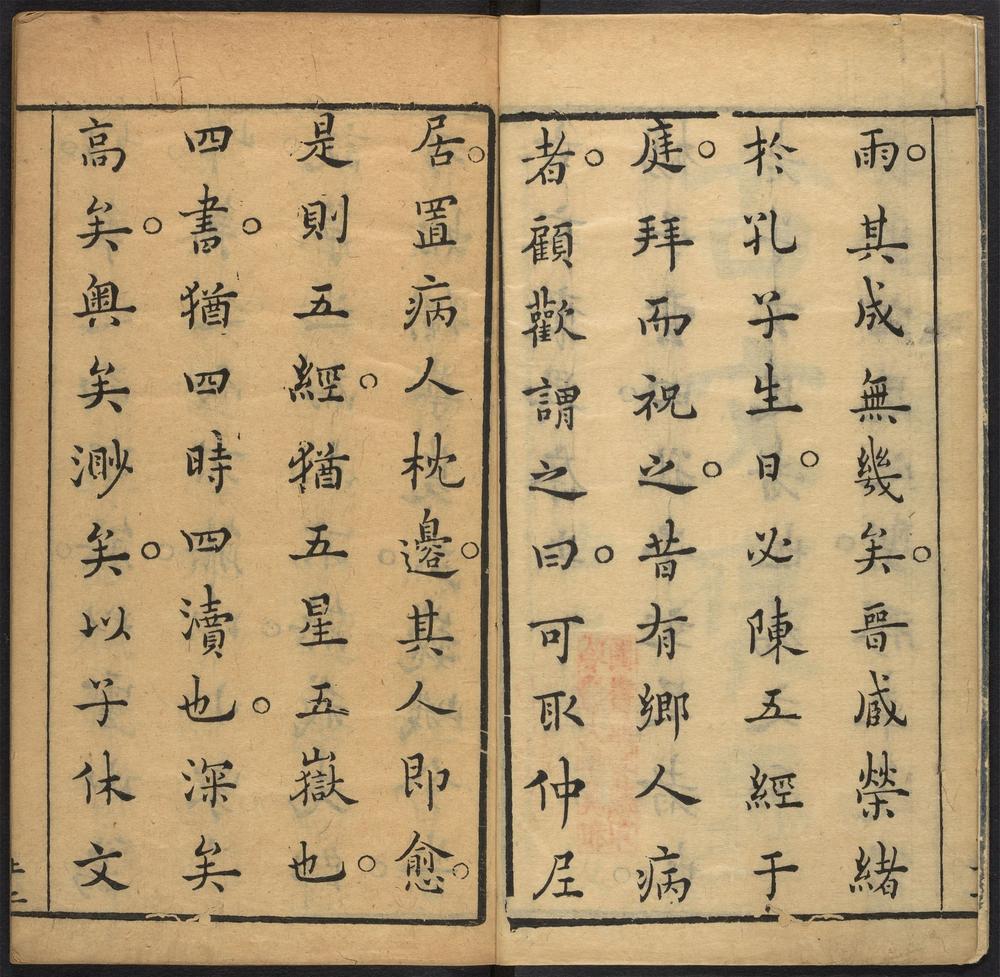 雨。其成無幾矣。晉臧榮緒
於孔子生日。必陳五經于
庭。拜而祝之。昔有鄉人病
者。顧歡謂之曰。可取仲尼
居。置病人枕邊。其人即愈。
是則五經。猶五星五嶽也。
四書。猶四時四瀆也。深矣
高矣。奧矣渺矣。以子休文